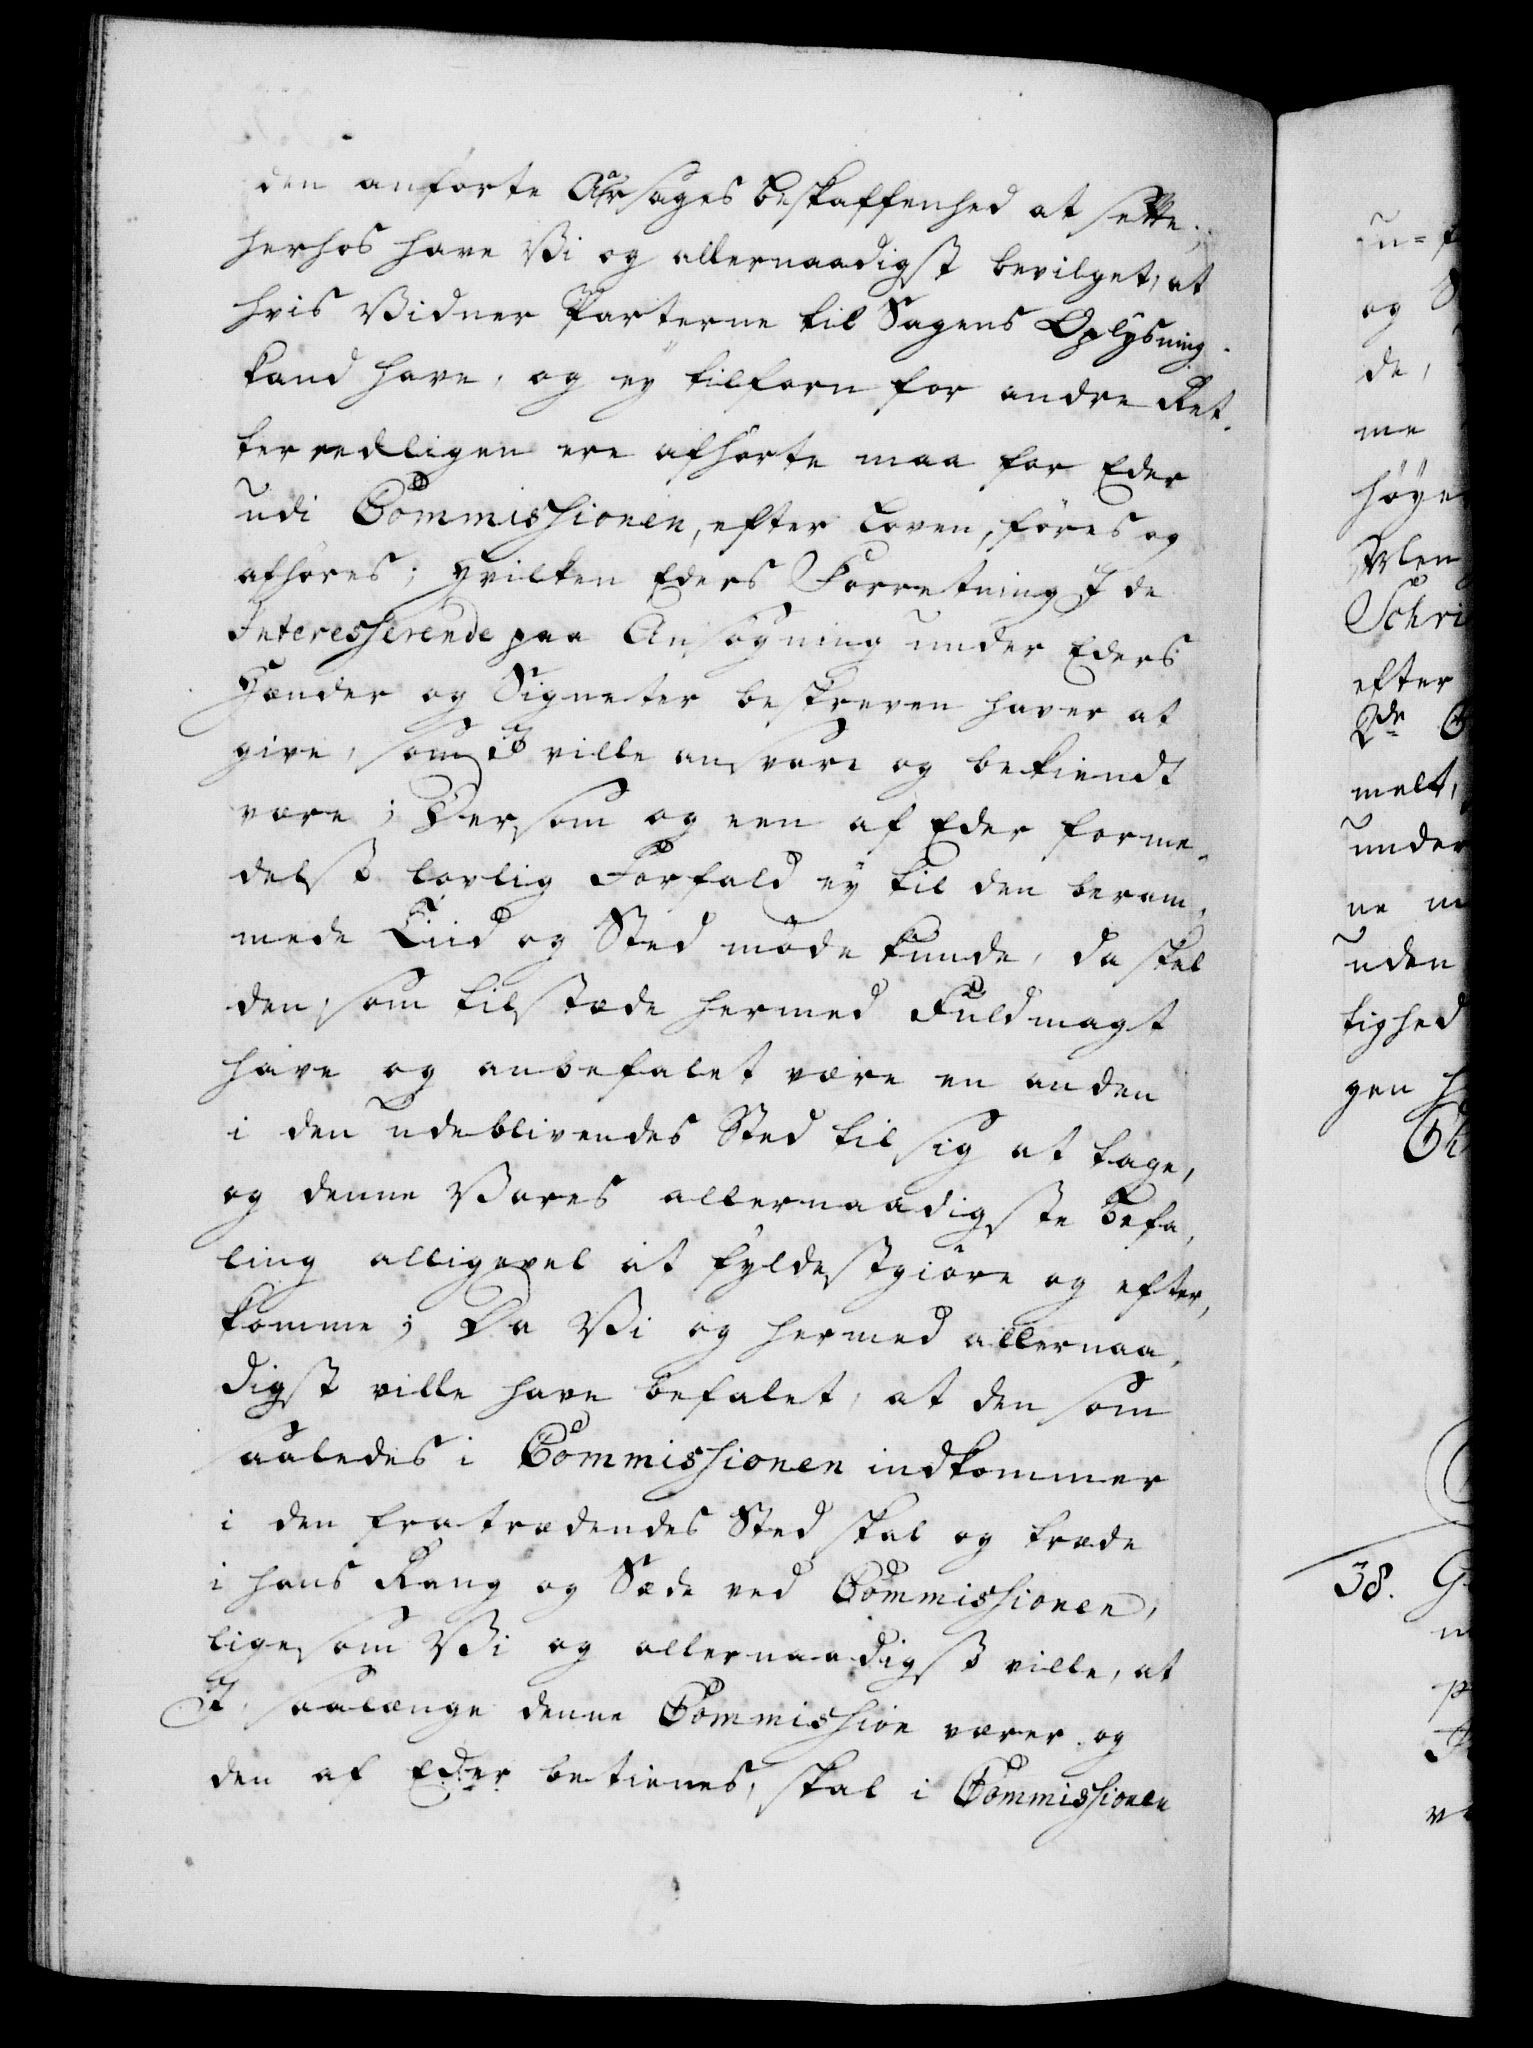 den anførte Aarsages Beskaffenhed at sette;
herhos have Vi og allernaadigst bevilget, at
hvis Vidner Parterne til Sagens Oplysning
kand have, og ey tilforn for andre Ret-
ter edligen ere afhørte maa for Eder
udi Commissionen, efter Loven, føres og
afhøres; hvilken Eders Forretning I de
Interesserende paa Ansøgning under Eders
Hænder og Signeter beskreven haver at
give, som I ville ansvare og bekiendt
være; Dersom og een af Eder forme-
delst lovlig Forfald ey til den beram-
mede Tiid og Sted møde kunde, da skal
den, som tilstæde hermed Fuldmagt
have og anbefalet være en anden
i den udeblivendes Sted til sig at tage,
og denne Vores allernaadigste Befa-
ling alligevel at fyldestgiøre og efter-
komme; Da Vi og hermed allernaa-
digst ville have befalet, at den som
saaledes i Commissionen indkommer
i den fratrædendes Sted skal og træde
i hans Rang og Sæde ved Commissionen,
ligesom Vi og allernaadigst ville, at
I, saalænge denne Commission varer og
den af Eder betienes, skal i Commissionen
og
de,
me
høye
efter
2de
melt,
under
ne
uden
tighed
gen
38.